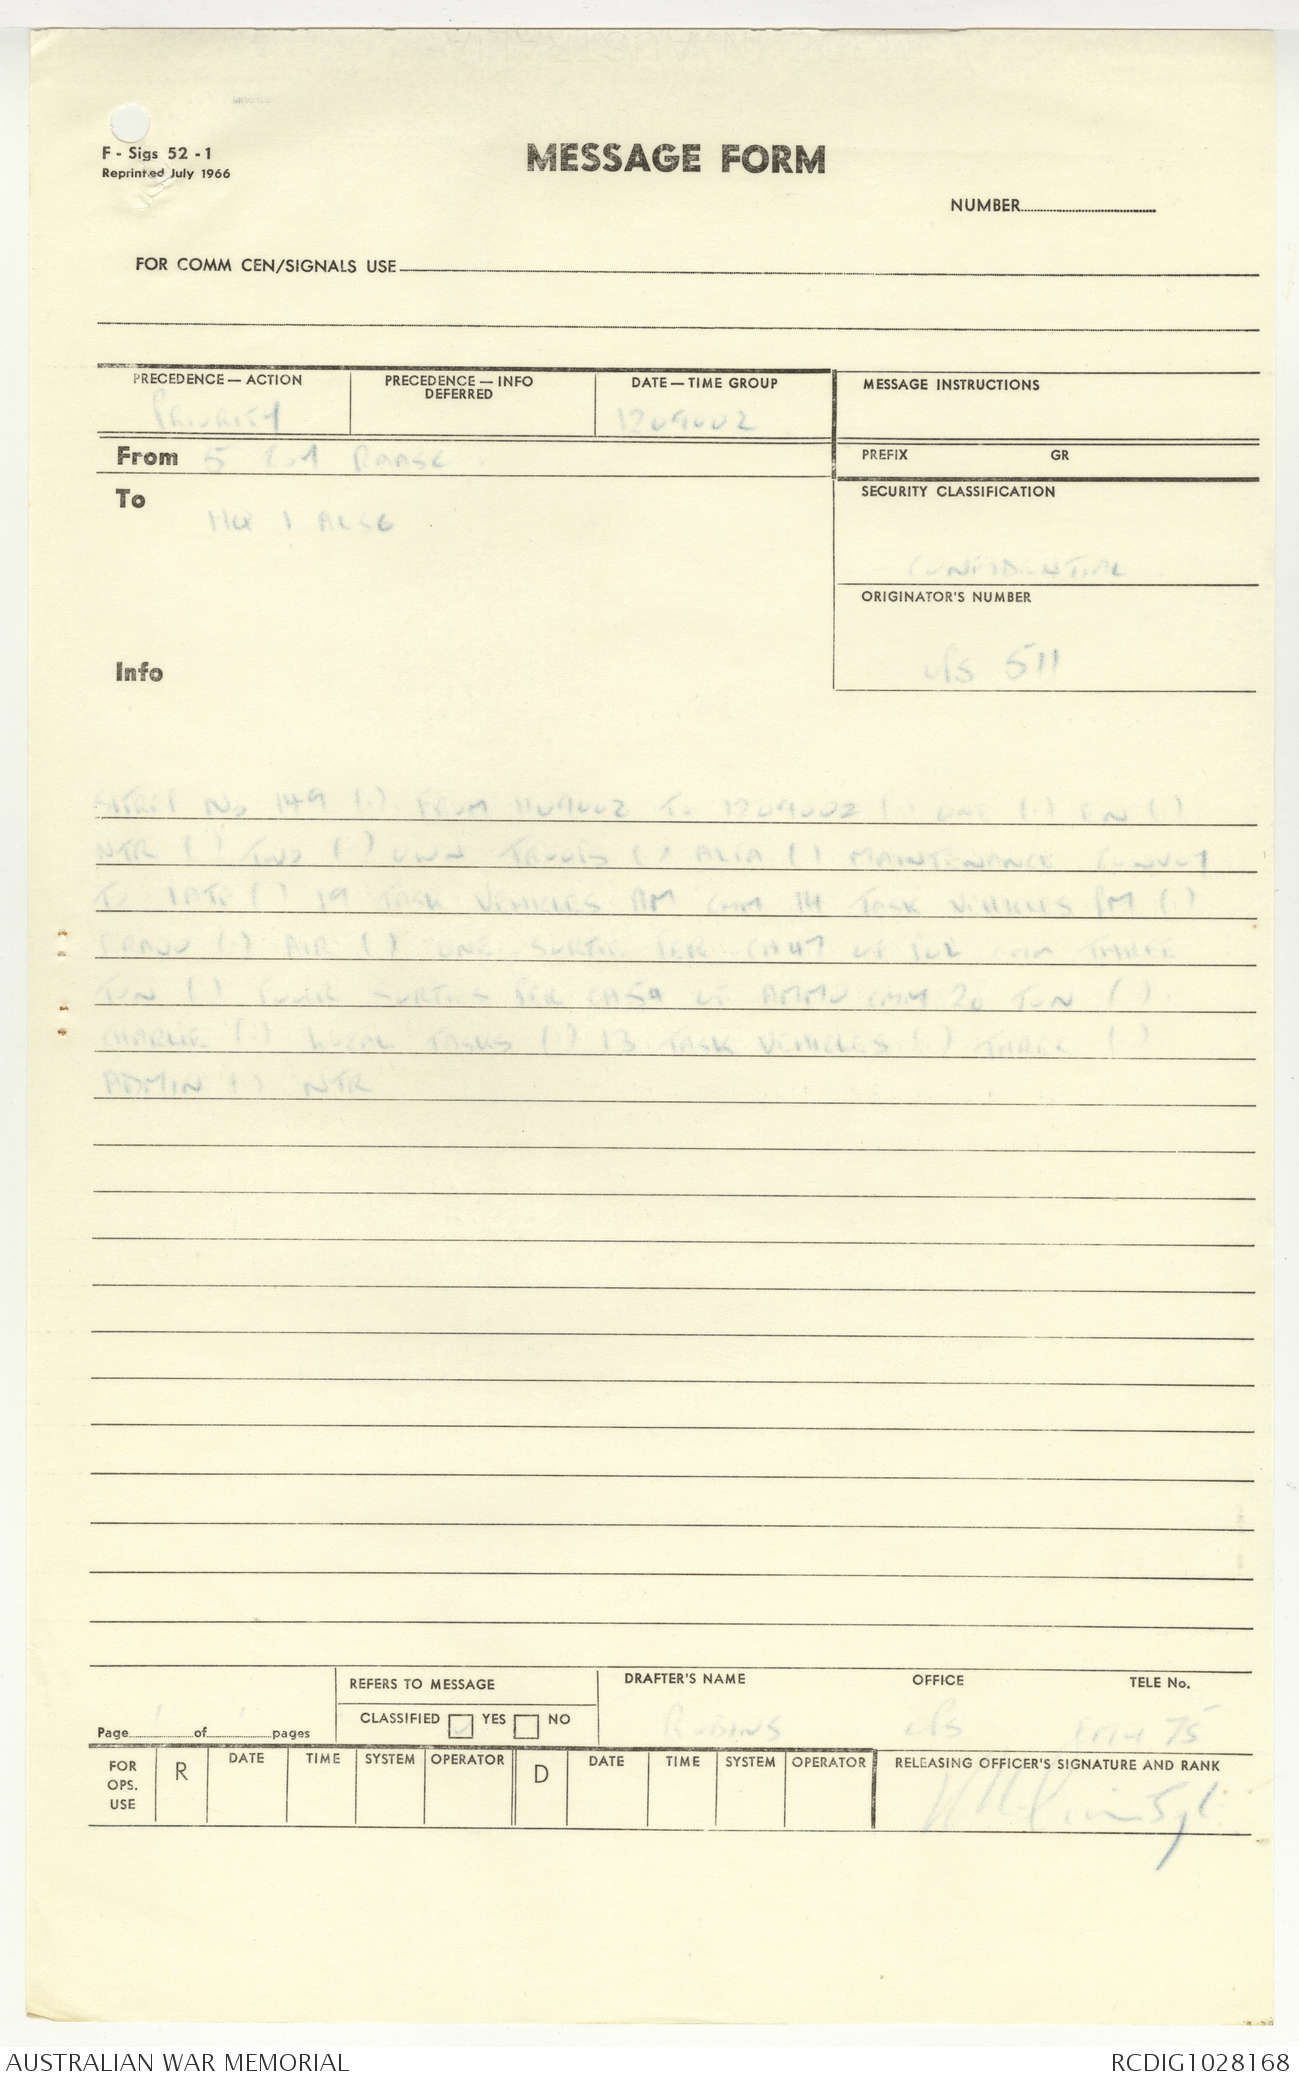 F - Sigs 52 - 1
Reprinted July 1966
MESSAGE FORM
NUMBER
FOR COMM CEN/SIGNALS USE
PRECEDENCE — ACTION
PRIORITY
PRECEDENCE — INFO
DEFERRED
DATE — TIME GROUP
120900Z
MESSAGE INSTRUCTIONS
From 5 COY RAASC
PREFIX GR
To
HQ 1 ALSG
SECURITY CLASSIFICATION
CONFIDENTIAL
ORIGINATOR'S NUMBER
OPS 511
Info
SITREP No 149 (.) FROM 110900Z TO 120900Z (.) ONE (.) EN (.)
NTR (.) TWO (.) OWN TROOPS (.) ALFA (.) MAINTENANCE CONVOY
TO 1ATF (.) 19 TASK VEHICLES AM CMM 14 TASK VEHICLES PM (.)
BRAVO (.) AIR (.) ONE SORTIE PER CH47 OF CMM THREE
TON (.) FOUR SORTIES PER CH54 OF AMMO CMM 20 TON (.)
CHARLIE (.) LOCAL TASKS (.) 13 TASK VEHICLES (.) THREE (.)
ADMIN (.) NTR
Page 1 of 1 pages
REFERS TO MESSAGE
CLASSIFIED YES NO
DRAFTER'S NAME
ROBINS
OFFICE
OPS
TELE No.
75
FOR
OPS.
USE
R DATE TIME SYSTEM OPERATOR D DATE TIME SYSTEM OPERATOR
RELEASING OFFICER'S SIGNATURE AND RANK
AUSTRALIAN WAR MEMORIAL
RCDIG1028168